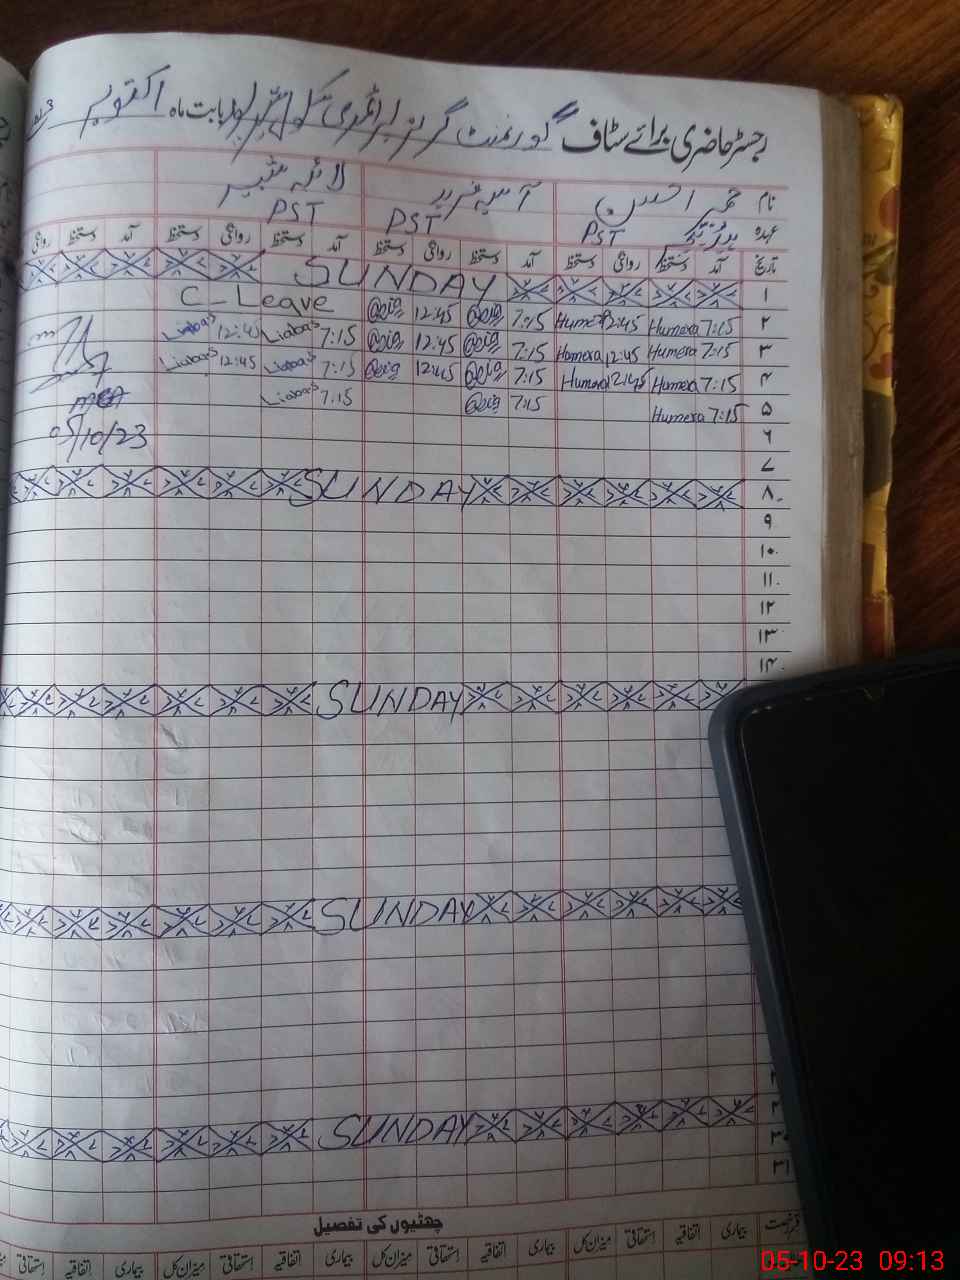 رجسٹر حاضری برائے سٹاف گورنمنٹ گرلز پرائمری سکول بابت ماہ اکتوبر
نام
آسیہ فرید
عہدہ PST PST PST
تاریخ آمد دستخط روانگی دستخط آمد دستخط روانگی دستخط آمد دستخط روانگی دستخط آمد دستخط روانگی
۱ SUNDAY
۲ 7:15 Humera 12:45 Hume 7:15 12:45 C-Leave
۳ 7:15 Humera 12:45 Humera 7:15 12:45 7:15 Liabas 12:45 Liabas
۴ 7:15 Humera 12:45 Humera 7:15 12:45 7:15 Liabas 12:45 Liabas
۵ 7:15 Humera 7:15 7:15 Liabas MEA
۶ 05/10/23
۷
۸ SUNDAY
۹
۱۰
۱۱
۱۲
۱۳
۱۴
SUNDAY
SUNDAY
۳۰ SUNDAY
۳۱
چھٹیوں کی تفصیل
قسم رخصت بیماری اتفاقیہ استحقاقی میزان کل بیماری اتفاقیہ استحقاقی میزان کل بیماری اتفاقیہ استحقاقی میزان کل بیماری اتفاقیہ استحقاقی
05-10-23 09:13